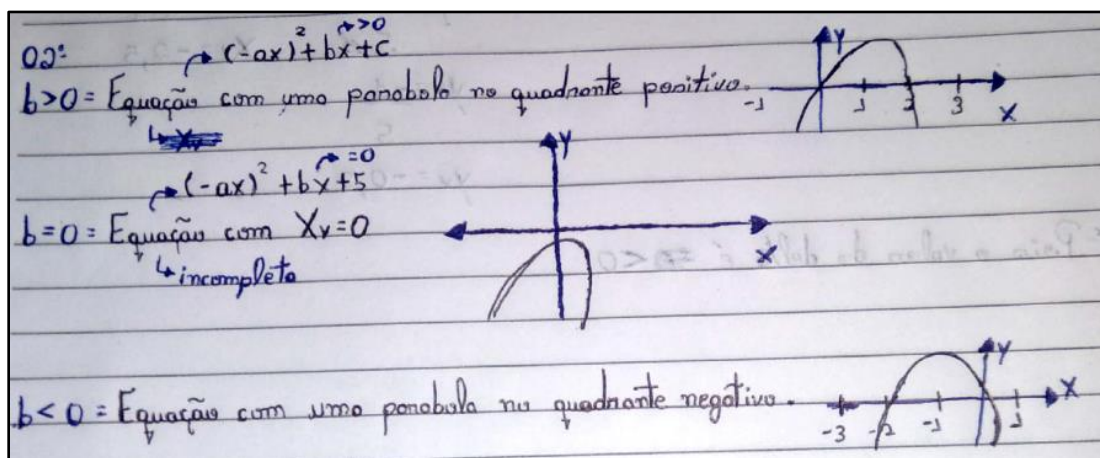 02:
(-ax)² + bx + c >0
b>0 = Equação com uma parabola no quadrante positivo.
Y
-1 1 2 3 X
(-ax)² + bx + 5 =0
b=0 = Equação com Xv=0
incompleta
Y
X
b<0 = Equação com uma parabola no quadrante negativo.
Y
-3 -2 -1 1 X